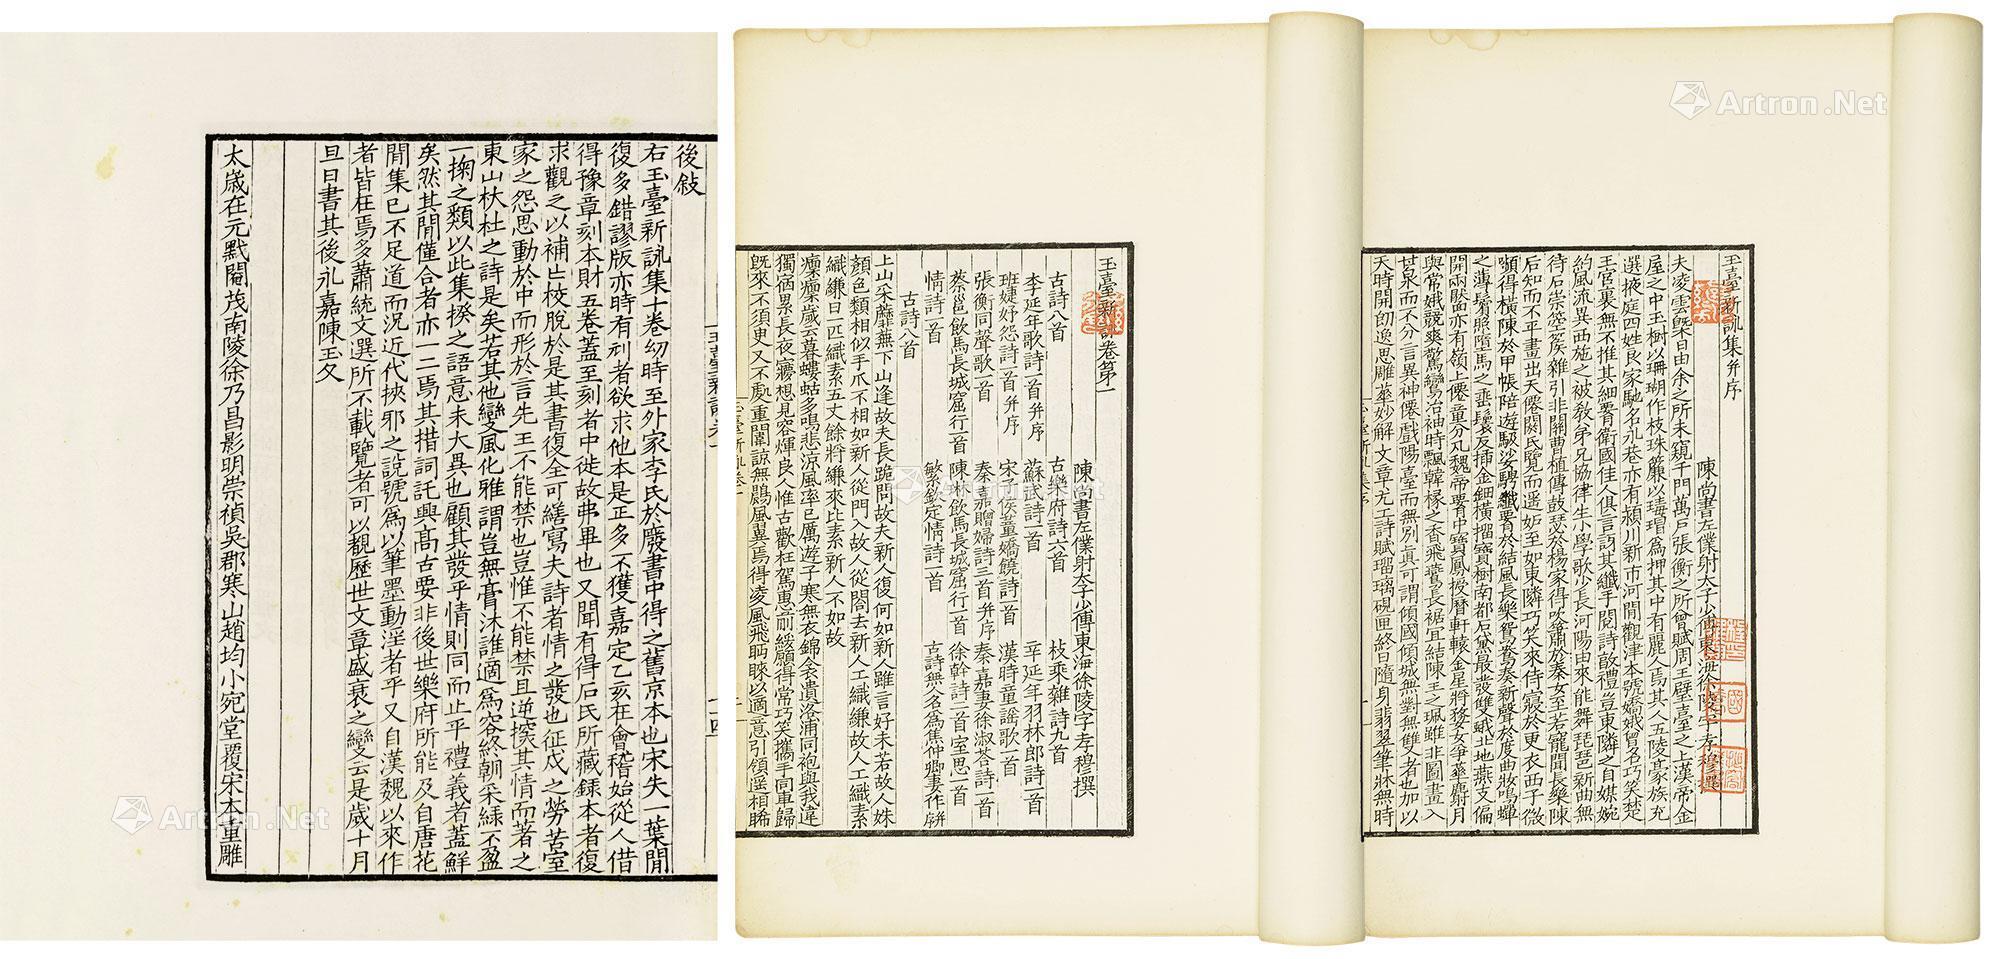 玉臺新詠集并序
陳尚書左僕射太子少傅東海徐陵字孝穆撰
夫凌雲槩日由余之所未窺千門萬戶張衡之所曾賦周王璧臺之上漢帝金
屋之中玉樹以珊瑚作枝珠簾以瑇瑁為押其中有麗人焉其人五陵豪族充
選掖庭四姓良家馳名永巷亦有潁川新市河間觀津本號嬌娥曾名巧笑楚
王宮裏無不推其細腰衛國佳人俱言訝其纖手閱詩敦禮豈東隣之自媒婉
約風流異西施之被教弟兄協律生小學歌少長河陽由來能舞琵琶新曲無
待石崇箜篌雜引非關曹植傳鼓瑟於楊家得吹簫於秦女至若寵聞長樂陳
后知而不平畫出天僊閼氏覽而遥妬至如東隣巧笑來侍寢於更衣西子微
顰得橫陳於甲帳陪遊馺娑騁纖腰於結風長樂鴛鴦奏新聲於度曲妝鳴蟬
之薄鬢照墮馬之垂鬟反插金鈿橫抽寶樹南都石黛最發雙蛾北地燕支偏
開兩靨亦有嶺上僊童分丸魏帝腰中寶鳳授曆軒轅金星將婺女爭華麝月
與常娥競爽驚鸞冶袖時飄韓椽之香飛鷰長裾宜結陳王之珮雖非圖畫入
甘泉而不分言異神僊戲陽臺而無別真可謂傾國傾城無對無雙者也加以
天時開朗逸思雕華妙解文章尤工詩賦瑠璃硯匣終日隨身翡翠筆牀無時
玉臺新詠卷第一
陳尚書左僕射太子少傅東海徐陵字孝穆撰
古詩八首 古樂府詩六首 枚乘雜詩九首
李延年歌詩一首并序 蘇武詩一首 辛延年羽林郎詩一首
班婕妤怨詩一首并序 宋子侯董嬌饒詩一首 漢時童謠歌一首
張衡同聲歌一首 秦嘉贈婦詩三首并序 秦嘉妻徐淑荅詩一首
蔡邕飲馬長城窟行一首 陳琳飲馬長城窟行一首 徐幹詩二首室思一首
情詩一首 繁欽定情詩一首 古詩無名為焦仲卿妻作并序
古詩八首
上山采蘼蕪下山逢故夫長跪問故夫新人復何如新人雖言好未若故人姝
顏色類相似手爪不相如新人從門入故人從閤去新人工織縑故人工織素
織縑日一匹織素五丈餘將縑來比素新人不如故
凜凜歲云暮螻蛄多鳴悲涼風率已厲遊子寒無衣錦衾遺洛浦同袍與我違
獨宿累長夜夢想見容煇良人惟古歡枉駕惠前綏願得常巧笑攜手同車歸
既來不須臾又不處重闈諒無鷐風翼焉得凌風飛眄睞以適意引領遥相睎
後敍
右玉臺新詠集十卷幼時至外家李氏於廢書中得之舊京本也宋失一葉間
復多錯謬版亦時有刓者欲求他本是正多不獲嘉定乙亥在會稽始從人借
得豫章刻本財五卷蓋至刻者中徙故弗畢也又聞有得石氏所藏録本者復
求觀之以補亡校脫於是其書復全可繕寫夫詩者情之發也征戍之勞苦室
家之怨思動於中而形於言先王不能禁也豈惟不能禁且逆探其情而著之
東山杕杜之詩是矣若其他變風化雅謂豈無膏沐誰適為容終朝采緑不盈
一掬之類以此集揆之語意未大異也顧其發乎情則同而止乎禮義者蓋鮮
矣然其間僅合者亦一二焉其措詞託興高古要非後世樂府所能及自唐花
間集已不足道而況近代挾邪之說號為以筆墨動淫者乎又自漢魏以來作
者皆在焉多蕭統文選所不載覽者可以覩歷世文章盛衰之變云是歲十月
旦日書其後永嘉陳玉父
太歲在元黓閹茂南陵徐乃昌影明崇禎吳郡寒山趙均小宛堂覆宋本重雕
Artron.Net
Artron.Net
Artron.Net